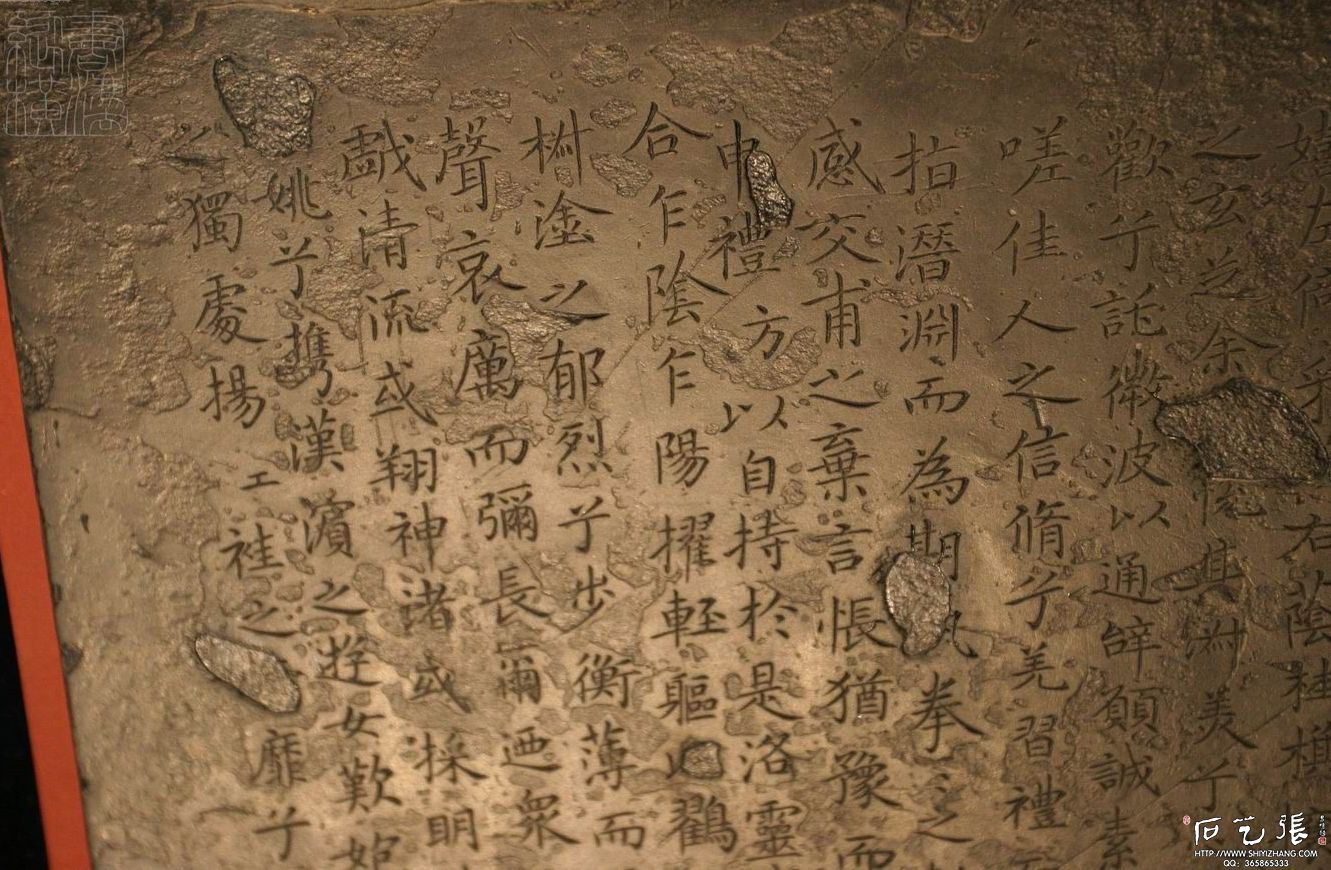 嬉左倚采右蔭桂旗
之玄芝余悅其淑美兮
歡兮託微波以通辝願誠素
嗟佳人之信脩兮羌習禮
指潛淵而為期執拳之
感交甫之棄言悵猶豫而
申禮方以自持於是洛靈
合乍陰乍陽擢輕軀以鶴
椒塗之郁烈兮步衡薄而
聲哀厲而彌長爾迺衆
戲清流或翔神渚或採明
姚兮攜漢濱之遊女歎匏
之獨處揚袿之靡兮
石艺張
HTTP://WWW.SHIYIZHANG.COM
QQ: 365865333